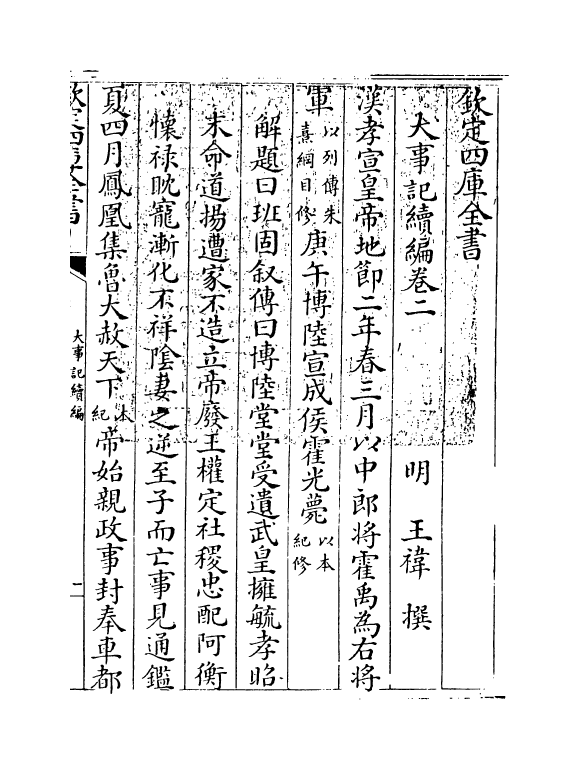 欽定四庫全書
大事記續編卷二
明 王禕 撰
漢孝宣皇帝地節二年春三月以中郎將霍禹為右將
軍以列傳朱熹綱目修庚午博陸宣成侯霍光薨以本紀修
解題曰班固叙傳曰博陸堂堂受遺武皇擁毓孝昭
末命導揚遭家不造立帝廢王權定社稷忠配阿衡
懷禄眈寵漸化不祥隂妻之逆至子而亡事見通鑑
夏四月鳳凰集魯大赦天下本紀帝始親政事封奉車都
欽定四庫全書
大事記續編
二